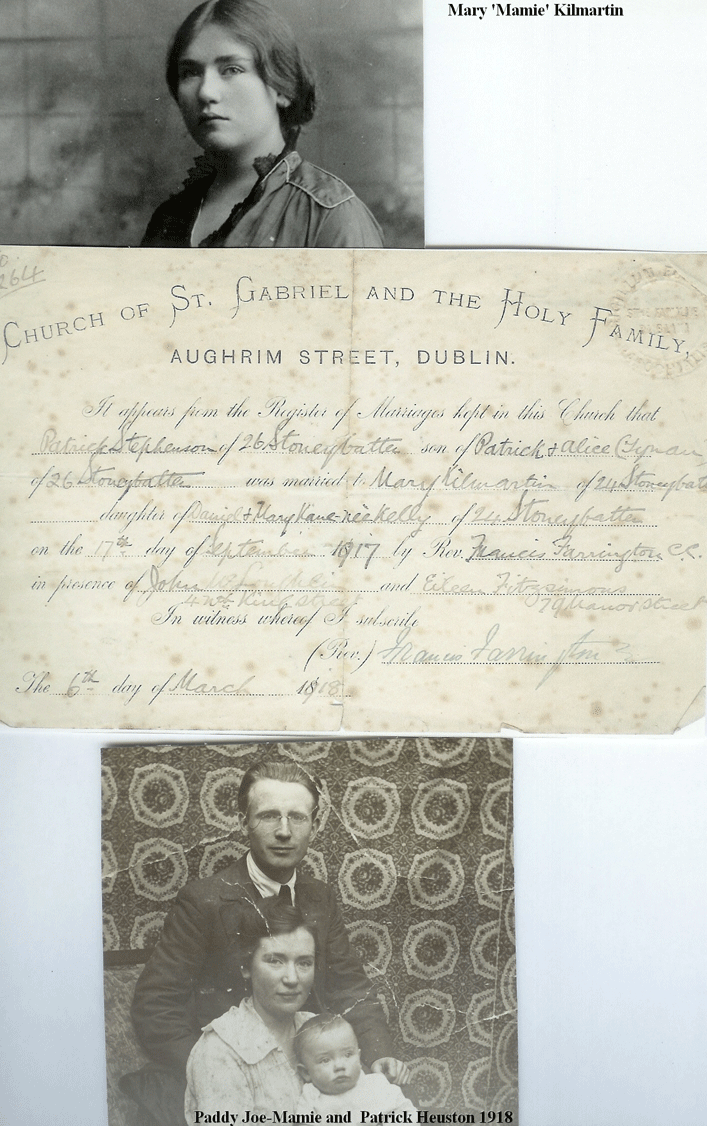 Mary 'Mamie' Kilmartin
264
CHURCH OF ST. GABRIEL AND THE HOLY FAMILY,
AUGHRIM STREET, DUBLIN.
It appears from the Register of Marriages kept in this Church that
Patrick Stephenson of 26 Stoneybatter son of Patrick & Alice
of 26 Stoneybatter was married to Mary Kilmartin of 24 Stoneybatt
daughter of Daniel & Mary Kane neé Kelly of 24 Stoneybatter
on the 17th day of September 1917 by Rev. Francis Farrington C.C.
in presence of John and Eileen Fitzsimons
King Street 79 Manor Street
In witness whereof I subscribe
(Rev.) Francis Farrington
The 6th day of March 1918
Paddy Joe-Mamie and Patrick Heuston 1918